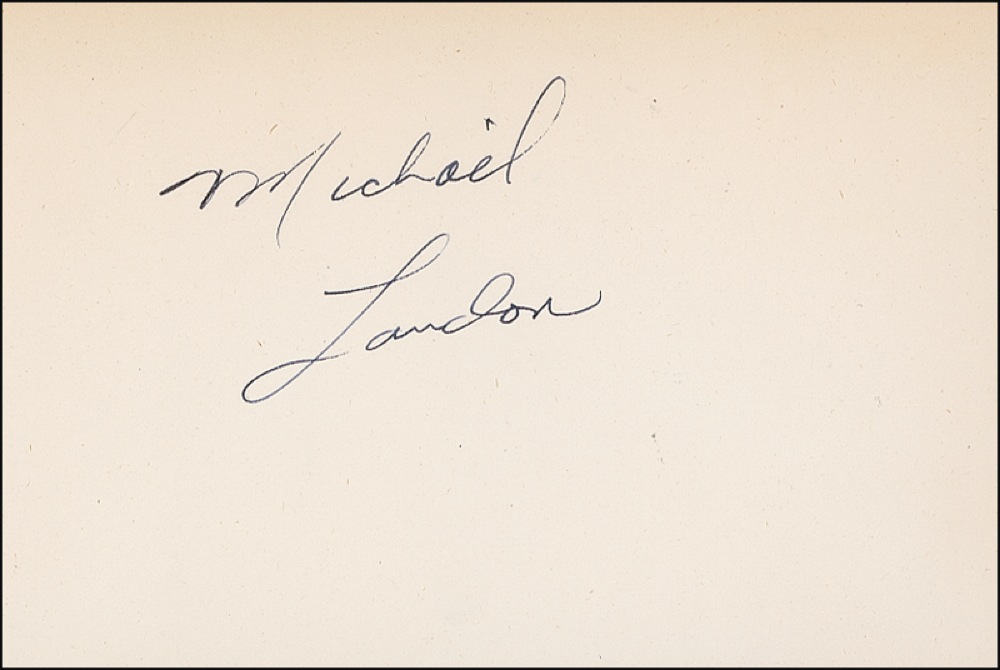 Michael
Landon